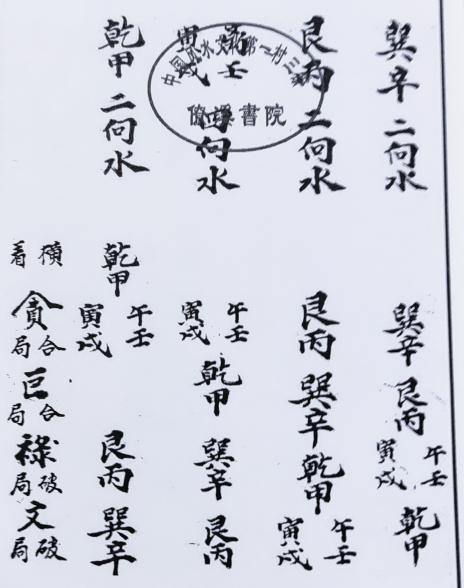 巽辛二向水
巽辛艮丙午壬寅戌乾甲
艮丙二向水
艮丙巽辛乾甲午壬寅戌
午壬寅戌四向水
午壬寅戌乾甲巽辛艮丙
乾甲二向水
乾甲午壬寅戌艮丙巽辛
橫看
貪合局
巨合局
祿破局
文破局
中国风水
第一村三
書院